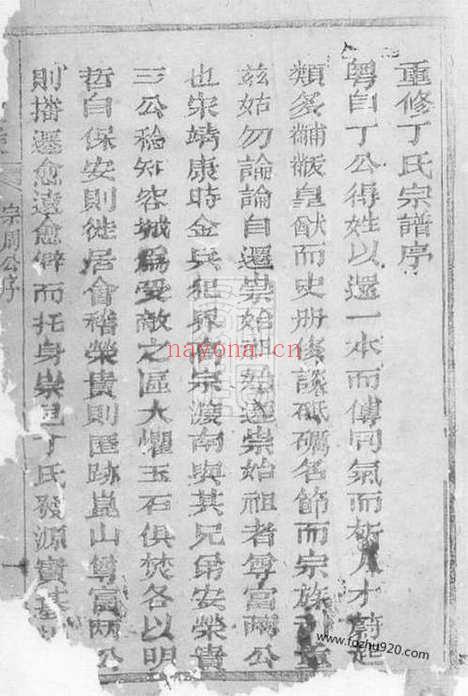 重修丁氏宗譜序
粵自丁公得姓以還一本而傳同氣而析人才蔚起
類多黼黻皇猷而史册廣談砥礪名節而宗族引重
茲姑勿論論自遷崇始明始遷崇始祖者尊富兩公
也宋靖康時金兵犯界高宗渡南與其兄弟安榮貴
三公稔知容城為受敵之區大懼玉石俱焚各以明
哲自保安則徙居會稽榮貴則匿跡崑山尊富兩公
則播遷愈遠愈僻而托身崇邑丁氏發源實基
宗周公序
一
nayona.cn
www.fozhu920.com